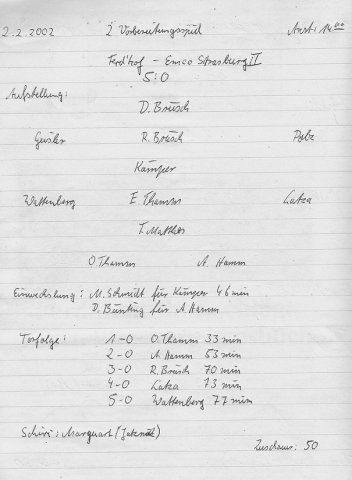 2.2.2002 2 Vorbereitungsspiel Anst: 14.00
Ferd'hof - Enico Strasburg II
5:0
Aufstellung:
D. Brüsch
Geisler R. Brüsch Pelz
Kämper
Wattenberg E. Thamm Latza
T. Matthes
O. Thamm A. Hamm
Einwechslung: M. Schmidt für Kämper 46 min
D. Bünting für A. Hamm
Torfolge: 1-0 O. Thamm 33 min
2-0 A. Hamm 53 min
3-0 R. Brüsch 70 min
4-0 Latza 73 min
5-0 Wattenberg 77 min
Schiri: Marquart (Jatznick)
Zuschauer: 50